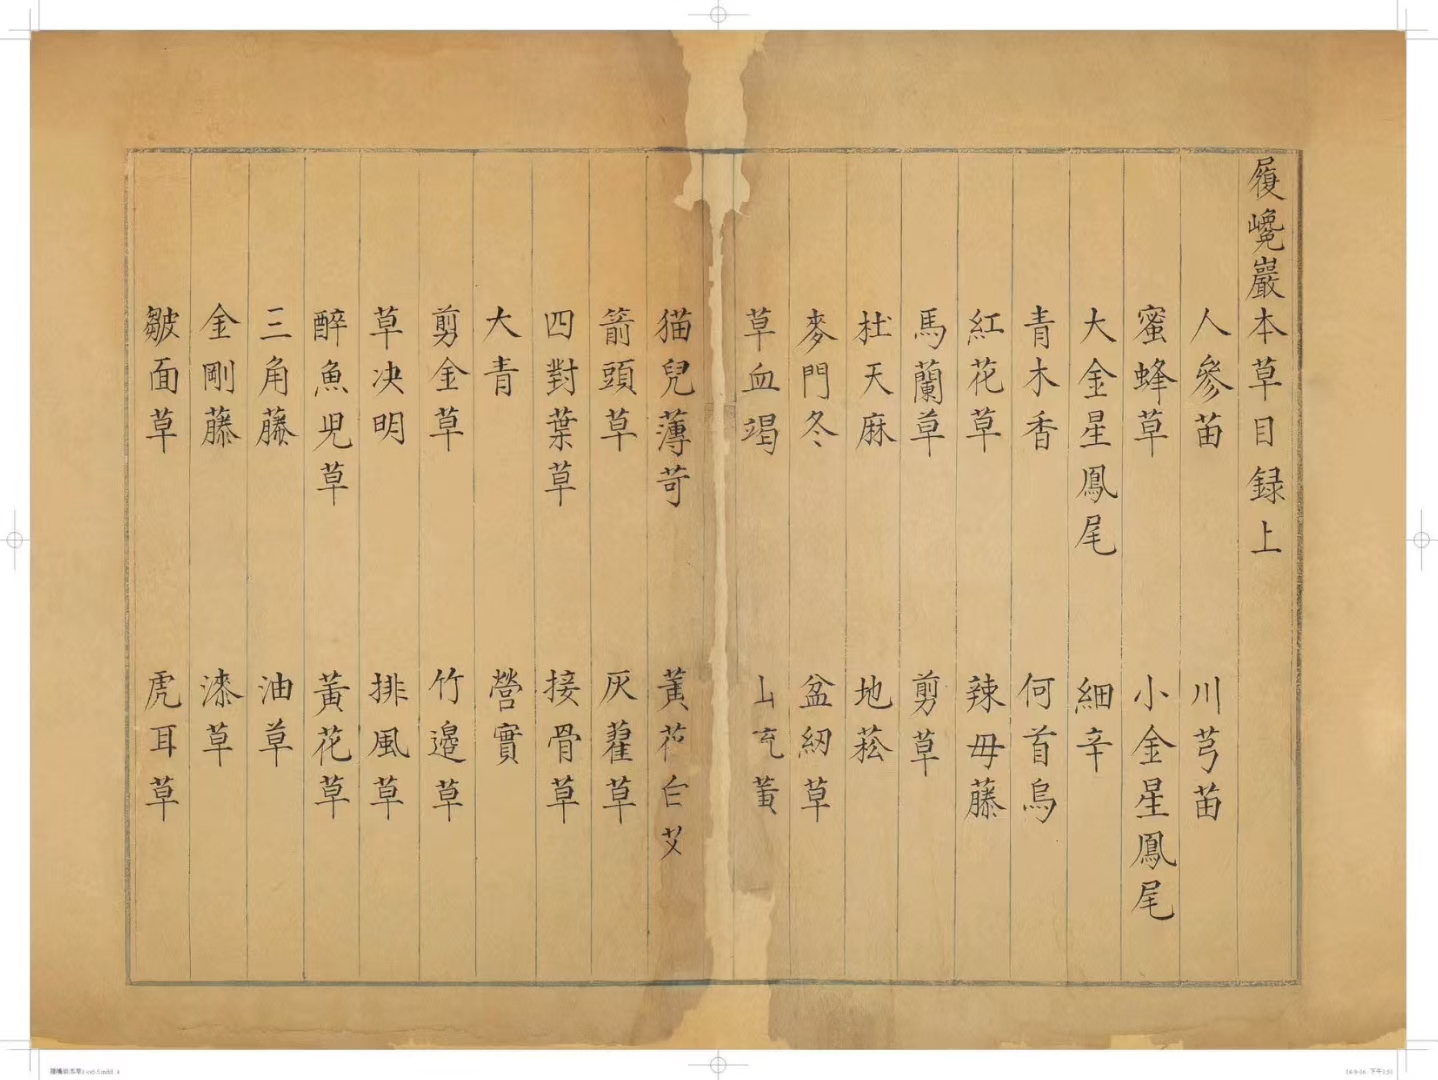 履巉巖本草目録上
人參苗 川芎苗
蜜蜂草 小金星鳳尾
大金星鳳尾 細辛
青木香 何首烏
紅花草 辣母藤
馬蘭草 剪草
杜天麻 地菘
麥門冬 盆紉草
草血竭
猫兒薄苛 黃花白艾
箭頭草 灰藋草
四對葉草 接骨草
大青 營實
剪金草 竹邉草
草决明 排風草
醉魚児草 黃花草
三角藤 油草
金剛藤 漆草
皺面草 虎耳草